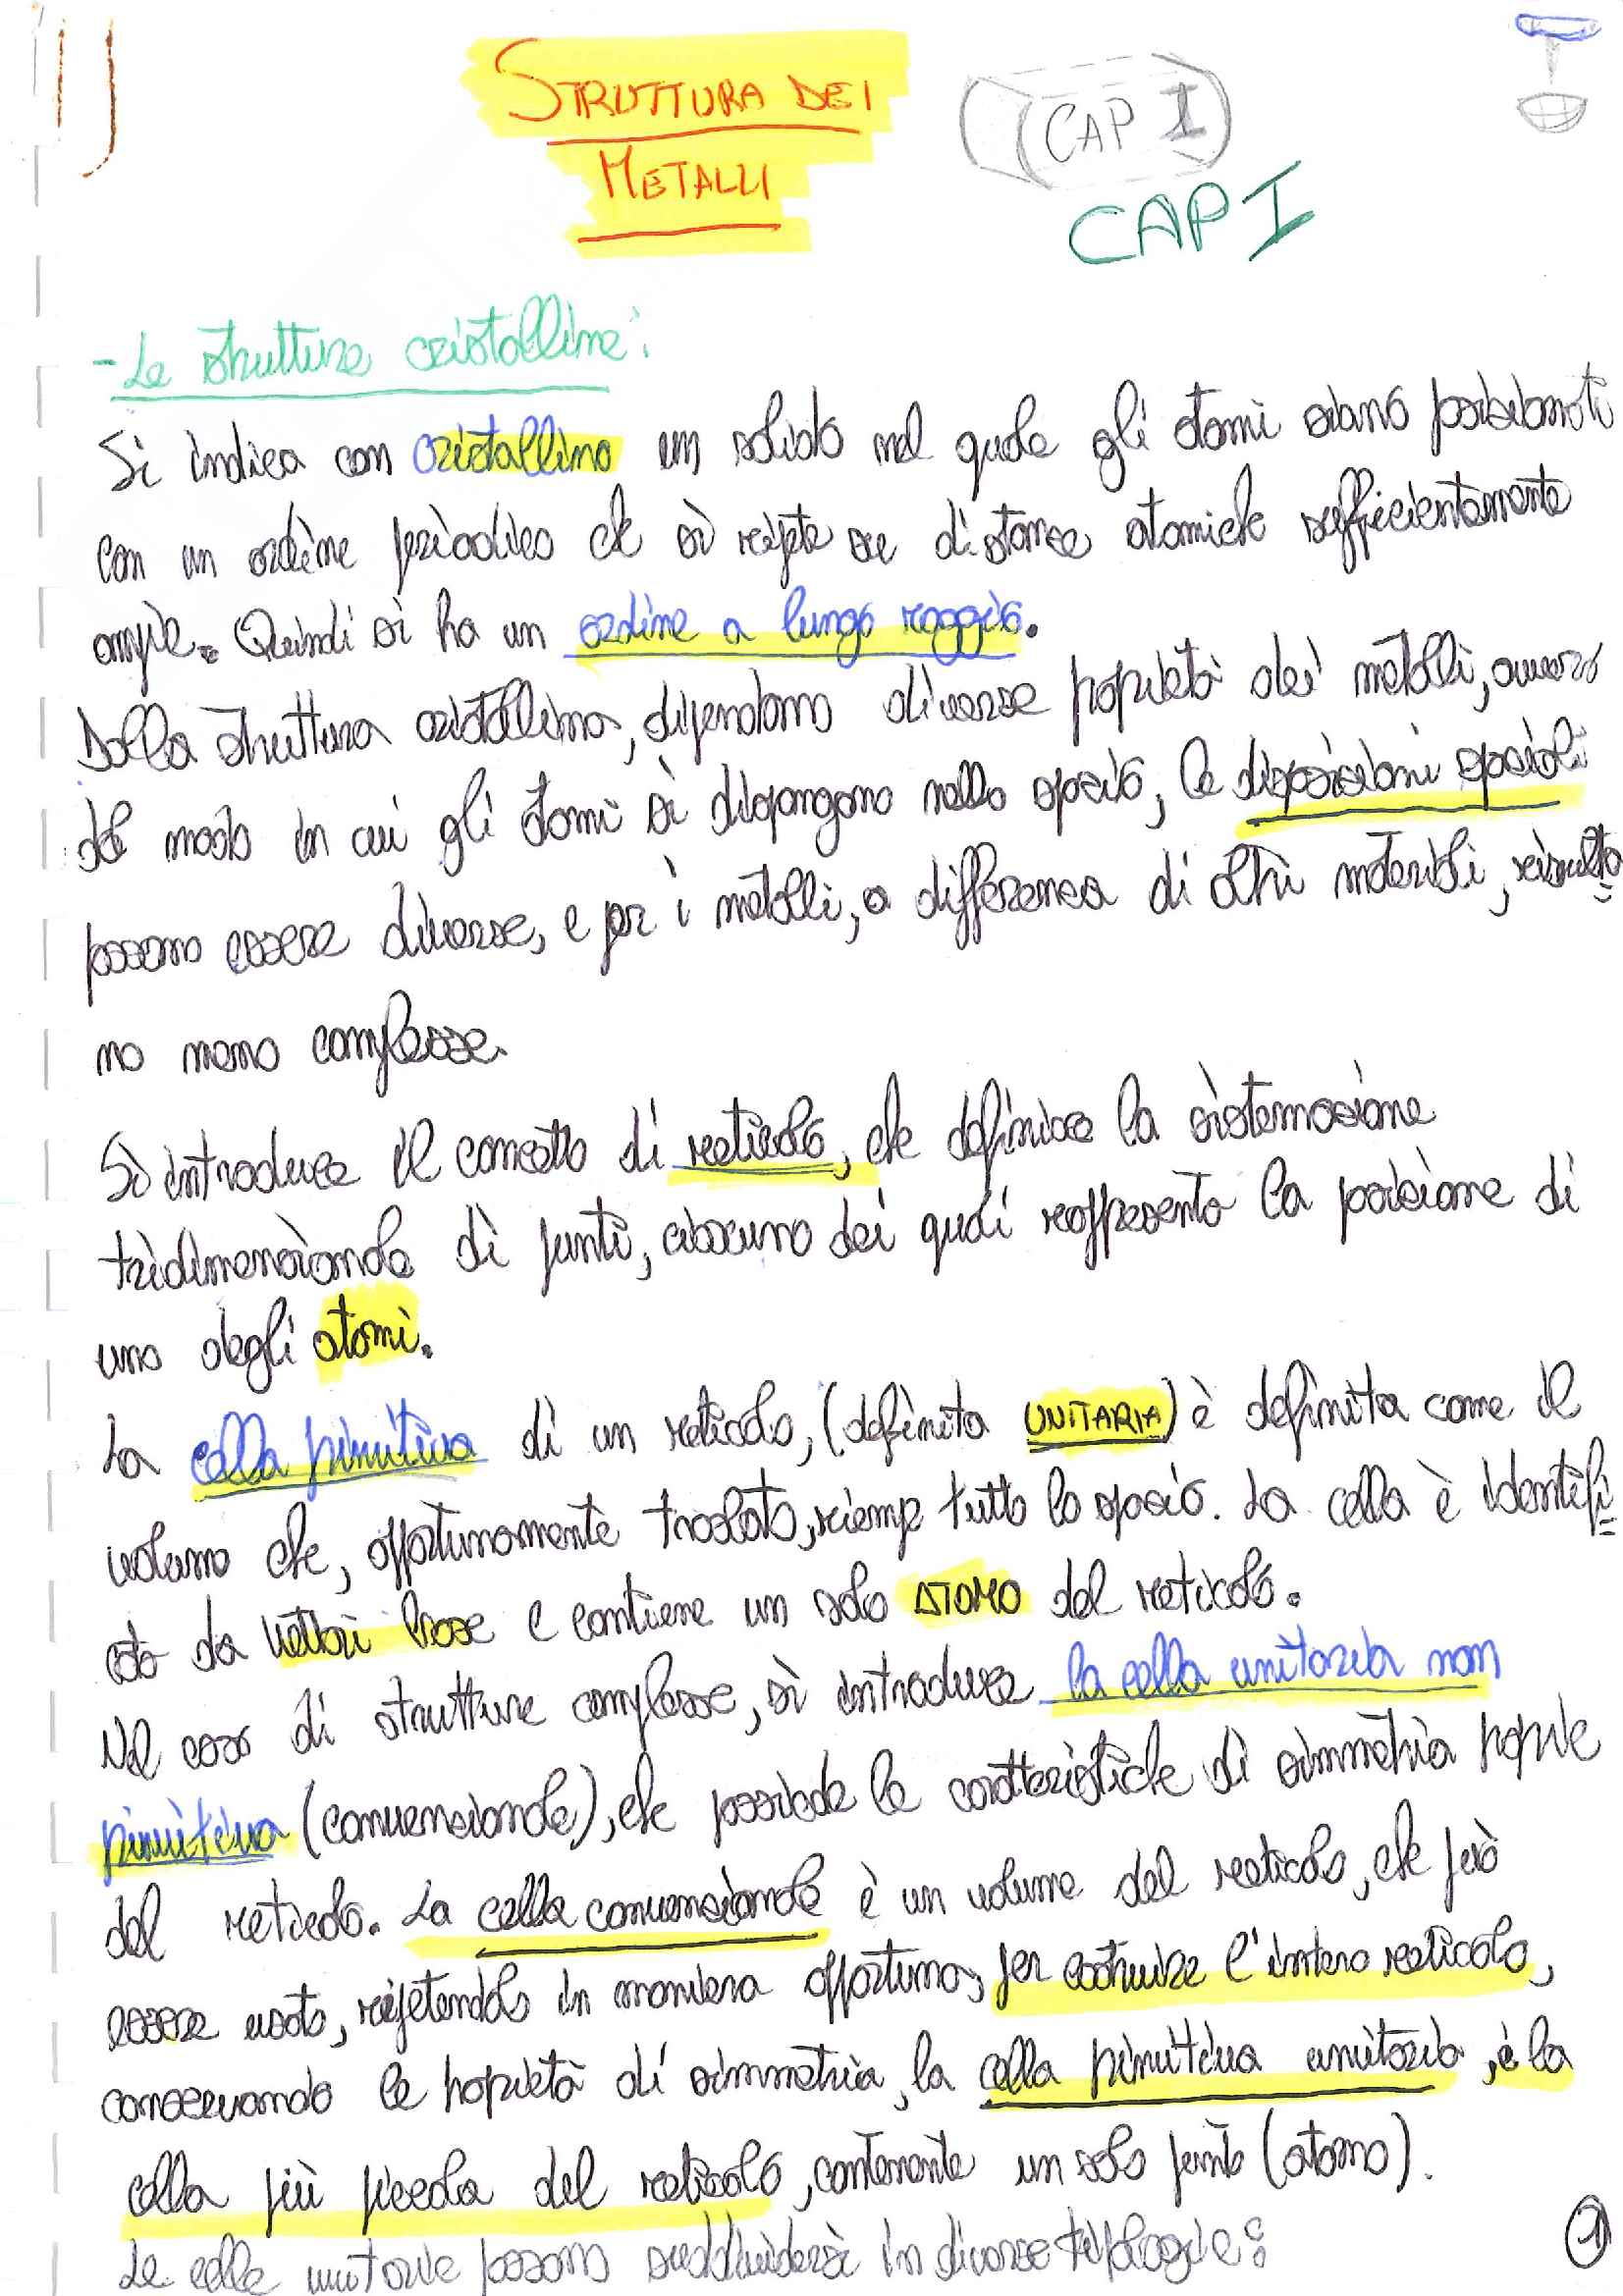 1)
STRUTTURA DEI
METALLI
CAP I
CAP I
- Le strutture cristalline:
Si indica con cristallino un solido nel quale gli atomi siano posizionati
con un ordine periodico che si ripete su distanze atomiche sufficientemente
ampie. Quindi si ha un ordine a lungo raggio.
Dalla struttura cristallina, dipendono diverse proprietà dei metalli, ovvero
del modo in cui gli atomi si dispongono nello spazio, le disposizioni spaziali
possono essere diverse, e per i metalli, a differenza di altri materiali, risulta
no meno complesse.
Si introduce il concetto di reticolo, che definisce la sistemazione
tridimensionale di punti, ciascuno dei quali rappresenta la posizione di
uno degli atomi.
La cella primitiva di un reticolo, (definita UNITARIA) è definita come il
volume che, opportunamente traslato, riempe tutto lo spazio. La cella è identifi
cata da vettori base e contiene un solo ATOMO del reticolo.
Nel caso di strutture complesse, si introduce la cella unitaria non
primitiva (convenzionale), che possiede le caratteristiche di simmetria proprie
del reticolo. La cella convenzionale è un volume del reticolo, che può
essere usato, ripetendolo in maniera opportuna, per costruire l'intero reticolo,
conservando le proprietà di simmetria, la cella primitiva unitaria, è la
cella più piccola del reticolo, contenente un solo punto (atomo).
Le celle unitarie possono suddividersi in diverse tipologie:
1